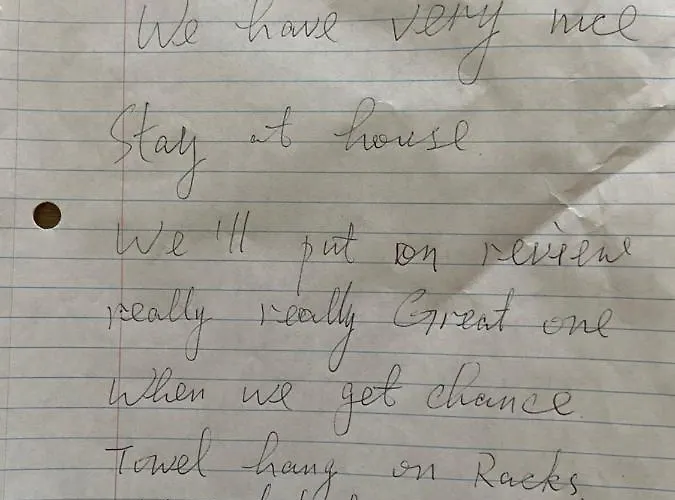 We have very nice
Stay at house
We'll put on review
really really Great one
When we get chance
Towel hang on Racks